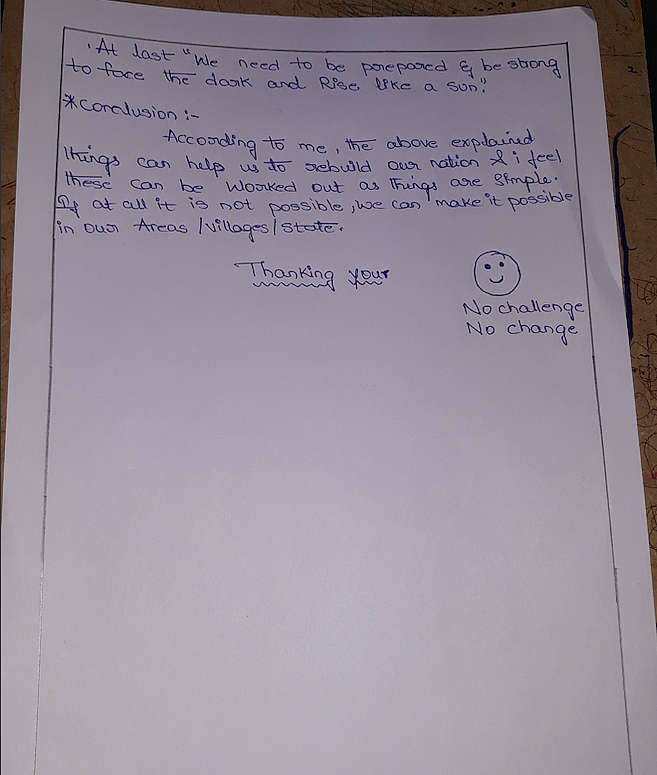 'At last "We need to be prepared & be strong
to face the dark and Rise like a sun."
*Conclusion :-
According to me, the above explained
things can help us to rebuild our nation & i feel
these can be worked out as things are simple.
If at all it is not possible, we can make it possible
in our Areas /villages/state.
Thanking your
No challenge
No change